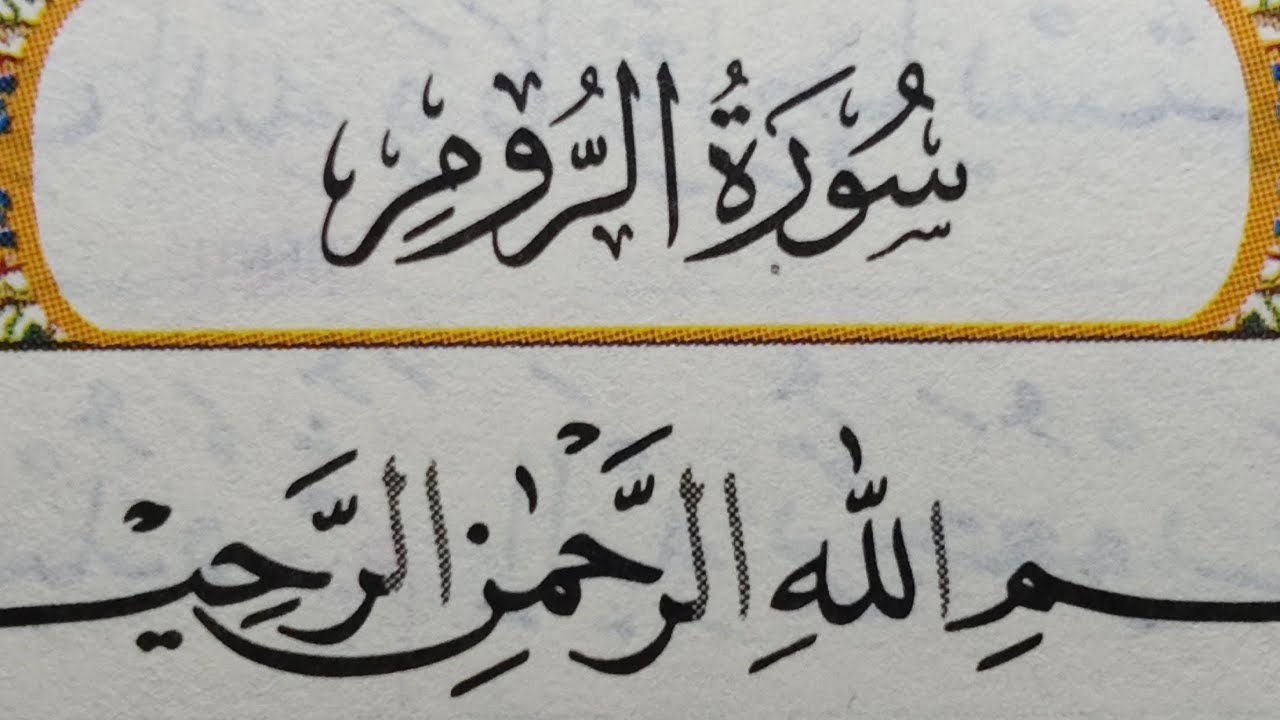 سُوْرَةُ الرُّوْمِ
سمِ اللّٰهِ الرَّحْمٰنِ الرَّحِيْ